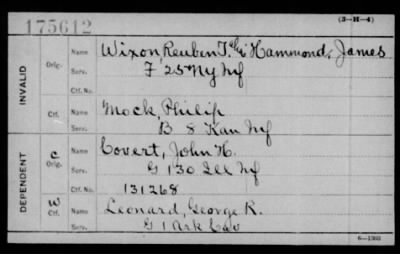 175612
(3—H—4)
INVALID
Orig.
Name Wixon, Reuben T. Hammond, James
Serv. F 25 Ny Inf
Ctf. No.
Ctf.
Name Mock, Philip
Serv. B 8 Kan Inf
DEPENDENT
C
Orig.
Name Covert, John H.
Serv. G 130 Ill Inf
Ctf. No. 131268
W
Ctf.
Name Leonard, George R.
Serv. G 1 Ark Cav